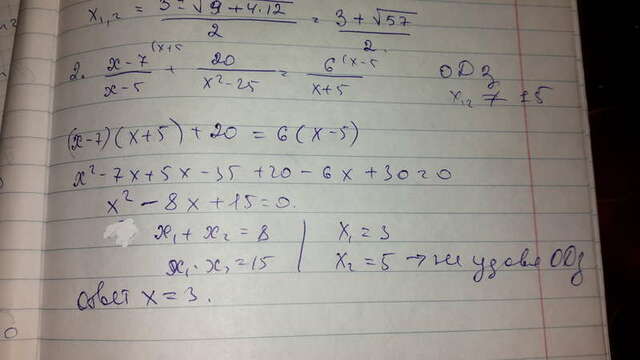 x₁,₂ = (3 ± √(9 + 4·12))/2 = (3 ± √57)/2
2. (x-7)/(x-5) (x+5 + 20/(x²-25) = 6/(x+5) (x-5 ОДЗ
x₁,₂ ≠ ±5
(x-7)(x+5)+20 = 6(x-5)
x²-7x+5x-35+20-6x+30=0
x²-8x+15=0.
x₁+x₂=8 | x₁=3
x₁·x₂=15 | x₂=5 → не удовл ОДЗ
Ответ x=3.